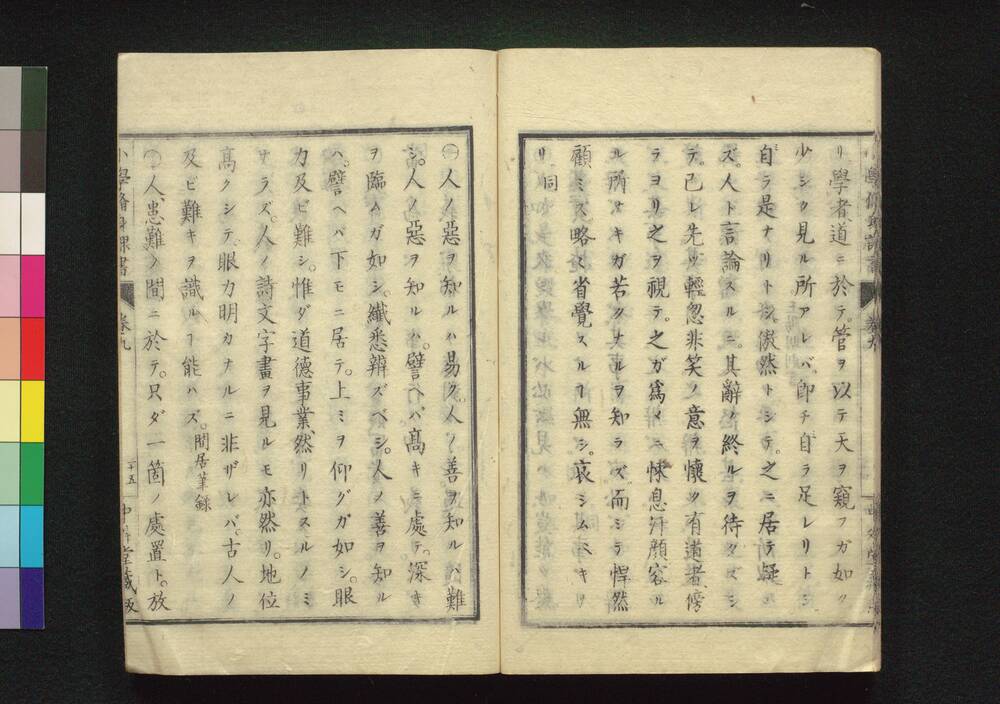 リ學者道ニ於テ管ヲ以テ天ヲ窺フガ如ク
少シク見ル所アレバ。卽チ自ラ足レリトシ
自ラ是ナリトシ。傲然トシテ。之ニ居テ疑ハ
ズ。人ト言論スルニ。其辭ノ終ルヲ待タズシ
テ。己レ先ツ輕忽非笑ノ意ヲ懷ク有道者傍
ラヨリ之ヲ視テ。之ガ爲メニ悚息シ顔容ル
ル所ナキガ若クナルヲ知ラズ。而ミラ悍然
顧ミズ略々省覺スルヿ無シ。哀シムベキナ
リ同
㊀人ノ惡ヲ知ルハ易ク。人ノ善ヲ知ルハ難
シ。人ノ惡ヲ知ルハ。譬ヘバ高キニ處テ。深キ
ヲ臨ムガ如シ。纎悉辨ズベシ。人ノ善ヲ知ル
ハ。譬ヘバ下モニ居テ。上ミヲ仰グガ如シ。眼
力及ビ難シ。惟ダ道德事業、然リトスルノミ
ナラズ。人ノ詩文字畫ヲ見ルモ亦然リ。地位
高クシテ。眼力明カナルニ非ザレバ。古人ノ
及ビ難キヲ識ルヿ能ハズ。間居筆錄
㊀人、患難ノ間ニ於テ。只ダ一箇ノ處置ト。放
小學脩身課書 卷九 二十五 中外堂藏版